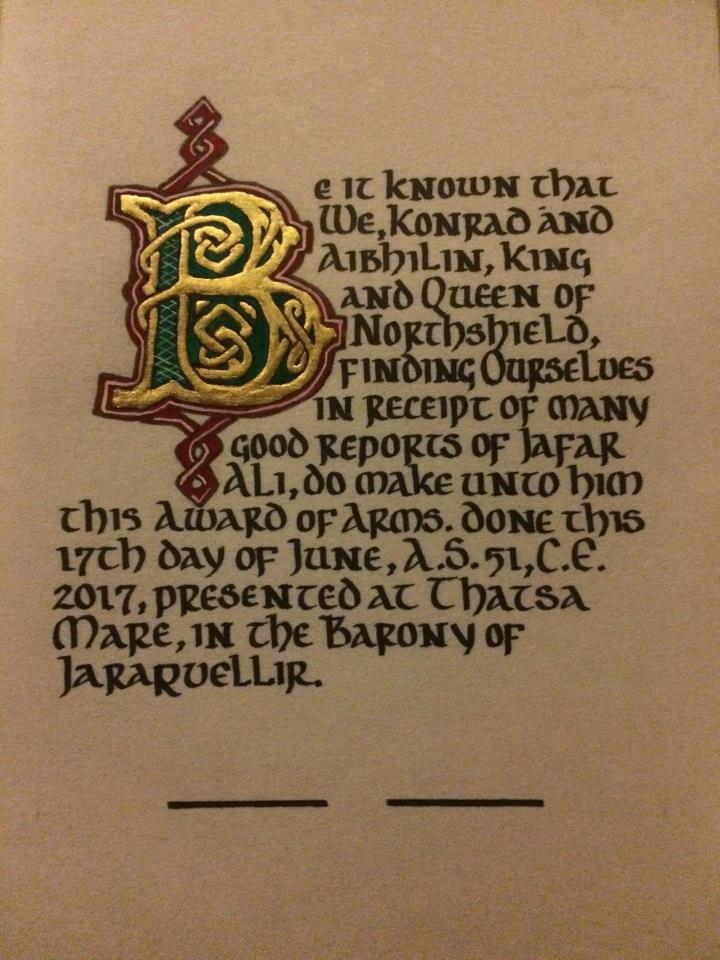 Be it known that
We, Konrad and
Aibhilin, King
and Queen of
Northshield,
finding Ourselves
in receipt of many
good reports of Jafar
Ali, do make unto him
this Award of Arms. Done this
17th day of June, A.S. 51, C.E.
2017, presented at Thatsa
Mare, in the Barony of
Jararvellir.